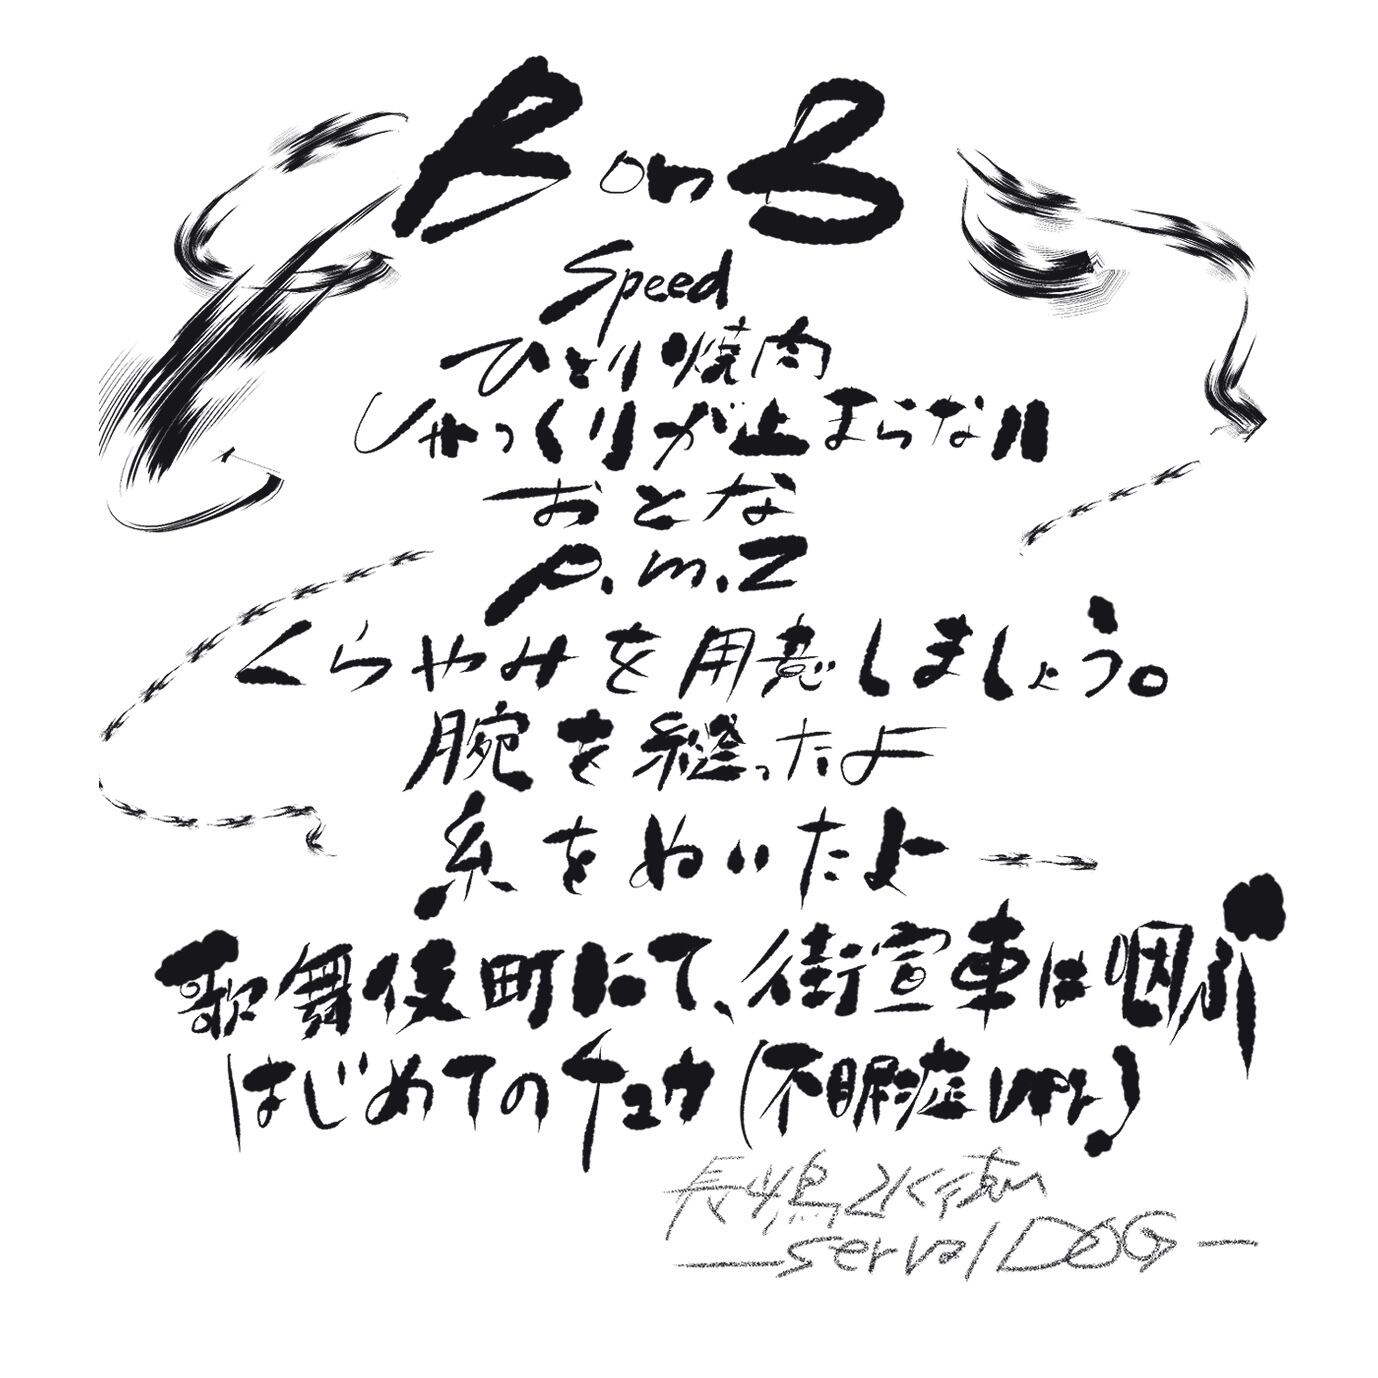 B on B
Speed
ひとり焼肉
しゃっくりが止まらない
おとな
p.m.2
くらやみを用意しましょう。
腕を縫ったよ
糸をぬいたよ
歌舞伎町にて、街宣車は咽ぶ
はじめてのチュウ(不眠症ver.)
長嶋水徳
serval DOG